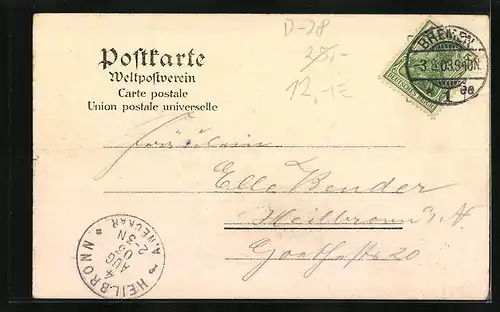 D-28
28,-
12,-
Postkarte
Weltpostverein
Carte postale
Union postale universelle
BREMEN
3 8 03 9-10N.
1
DEUTSCHES REICH
Fräulein
Elle Bender
Heilbronn a/N
Goethestr 20
HEILBRONN
4
AUG
03
2-3N
A. NECKAR